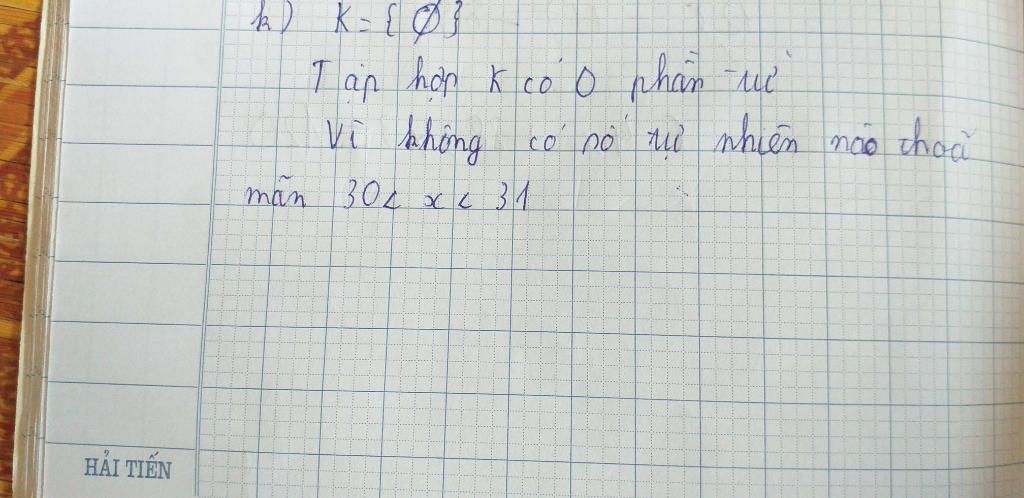 k) K = { Ø }
Tập hợp K có 0 phần tử
Vì không có số tự nhiên nào thoả
mãn 30 < x < 31
HẢI TIẾN